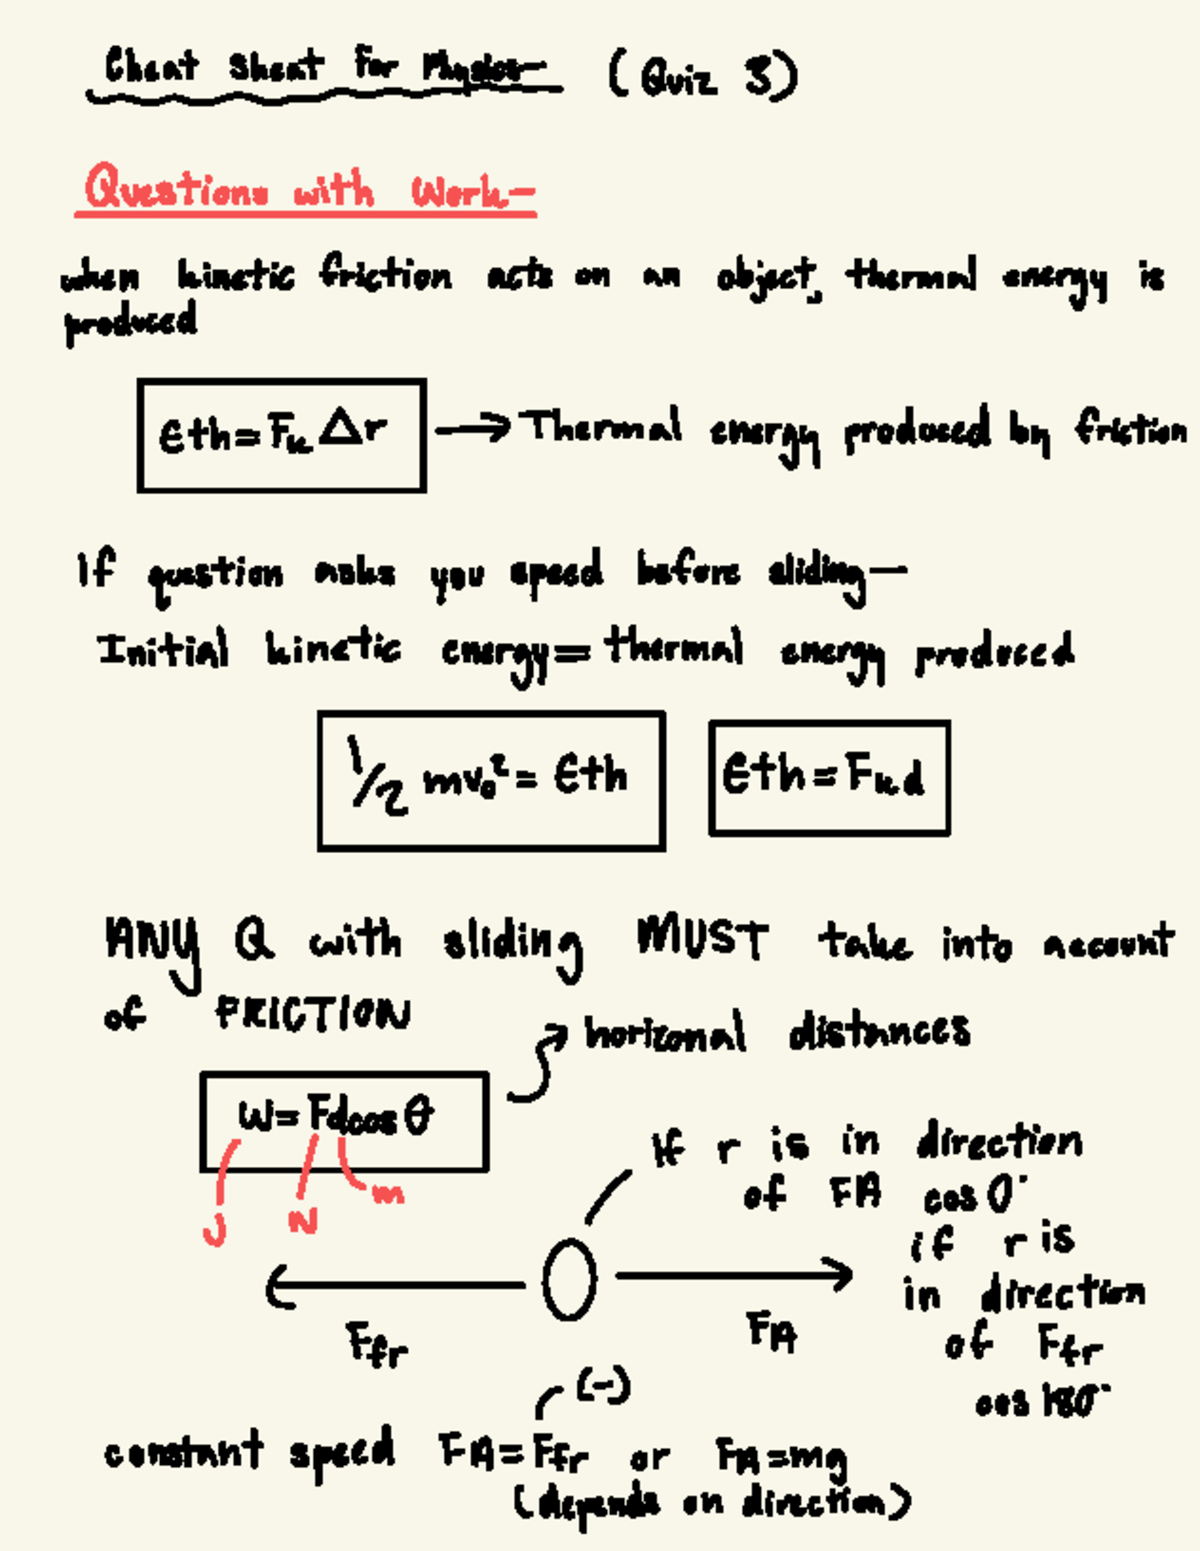 Cheat Sheet For Physics- (Quiz 3)
Questions with Work-
when kinetic friction acts on an object, thermal energy is
produced
Eth = Fk Δr → Thermal energy produced by friction
If question asks you speed before sliding-
Initial kinetic energy = thermal energy produced
1/2 mv₀² = Eth
Eth = Fk d
ANY Q with sliding MUST take into account
of FRICTION
horizonal distances
W = Fdcos θ
J N m
If r is in direction
of FA cos 0°
if r is
in direction
of Ffr
cos 180°
Ffr
FA
(-)
constant speed FA = Ffr or FA = mg
(depends on direction)